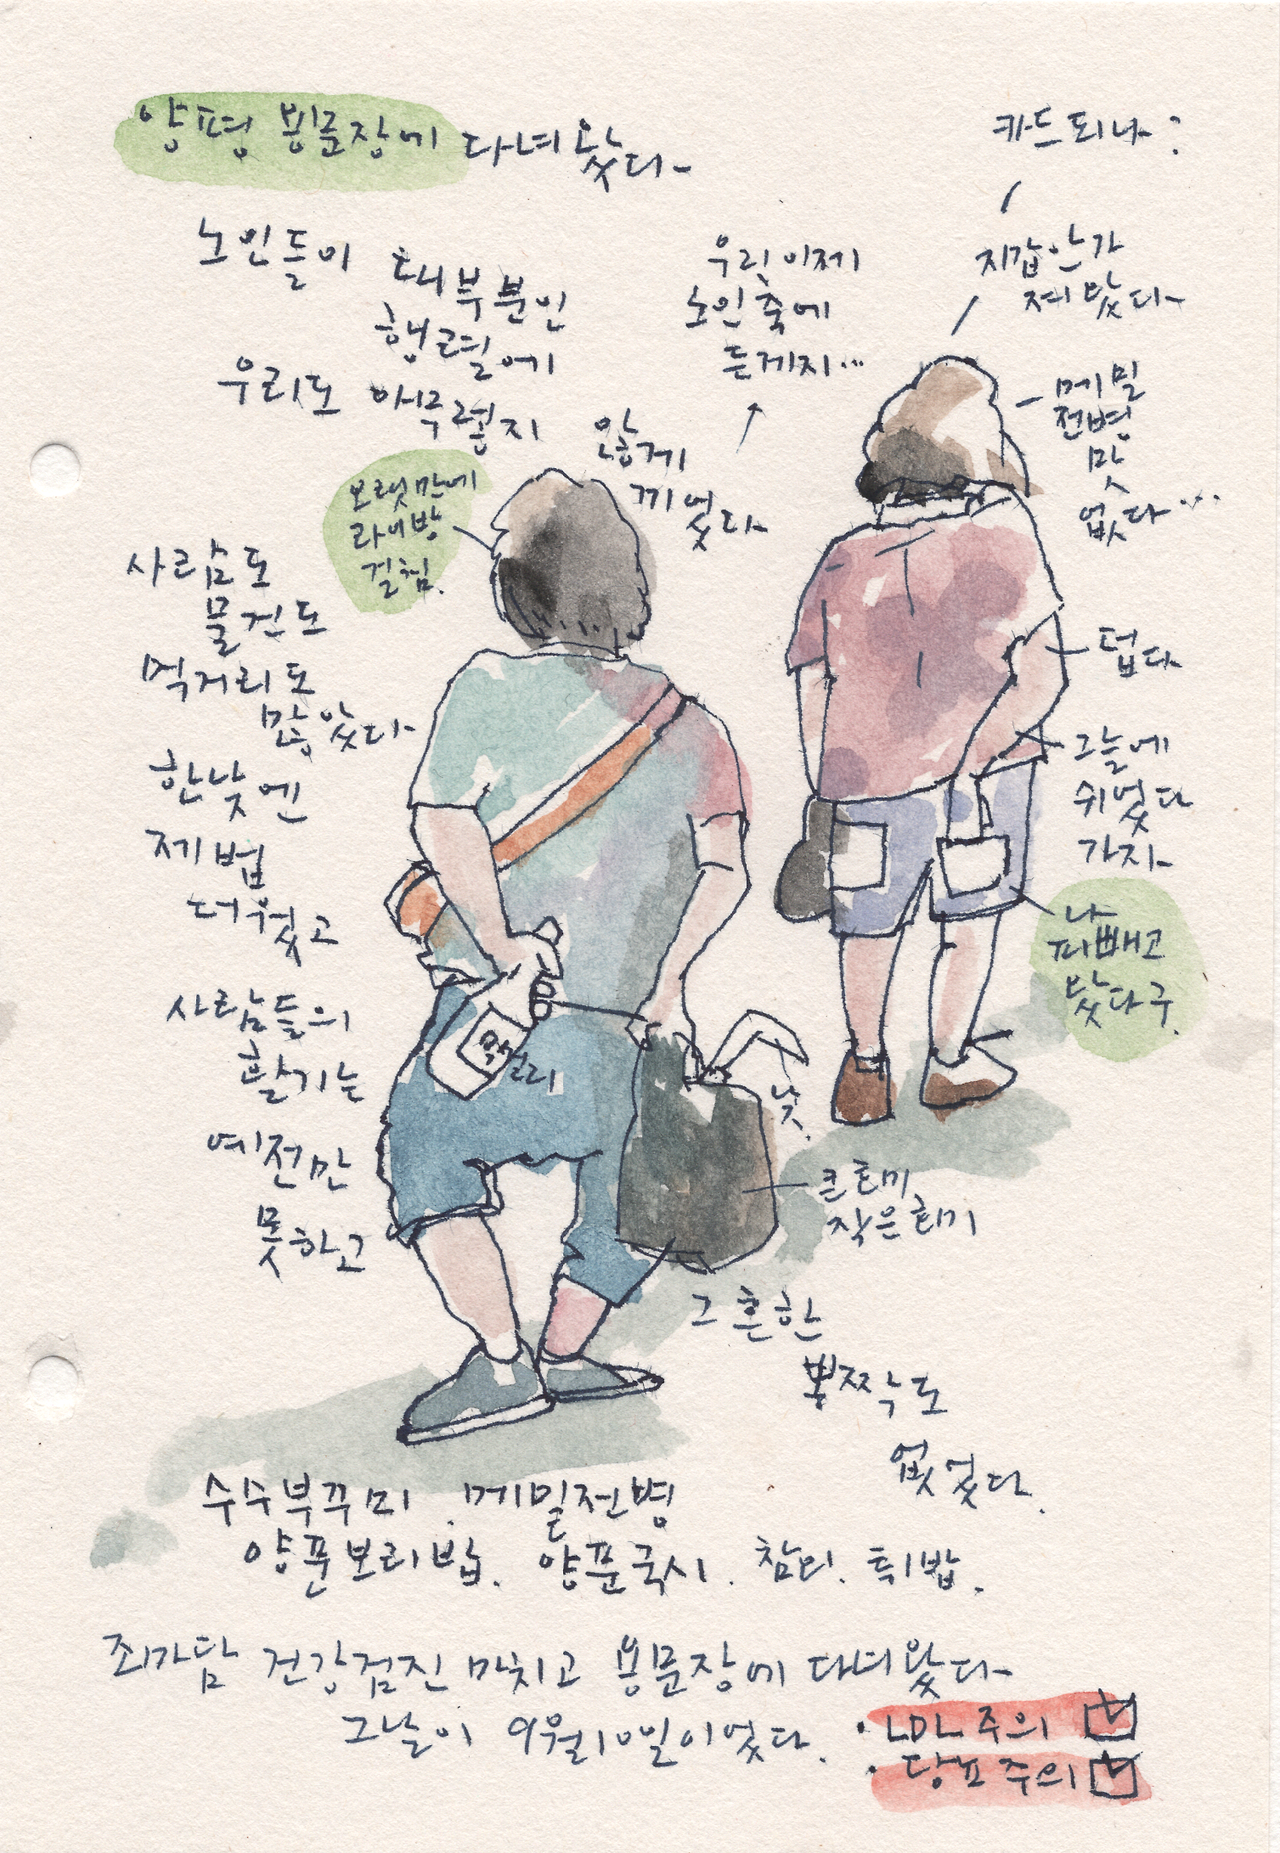 양평 용문장에 다녀왔다
노인들이 대부분인
행렬에
우리도 아무렇지 않게
끼었다
사람도
물건도
먹거리도
많았다
한낮엔
제법
더웠고
사람들의
활기는
예전만
못하고
보랏만에
라이방
걸침.
우리 이제
노인 축에
든게지...
카드되나?
지갑 안가
져 왔다
메밀
전병
맛
없다...
덥다
그늘에
쉬었다
가자
나
피빼고
왔다구.
막걸리
낫.
큰 호미
작은 호미
그 흔한
뽕짝도
없었다.
수수부꾸미. 메밀전병
양푼보리밥. 양푼국시. 참외. 튀밥.
죄가담 건강검진 마치고 용문장에 다녀왔다
그날이 9월10일이었다.
· LDL 주의
· 당뇨 주의